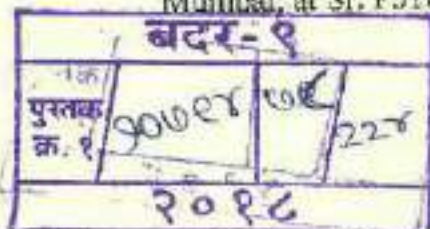 Mumbai, at Sr.
बदर-९
पुस्तक
क्र. १ १०७९४ २२४
२०१८